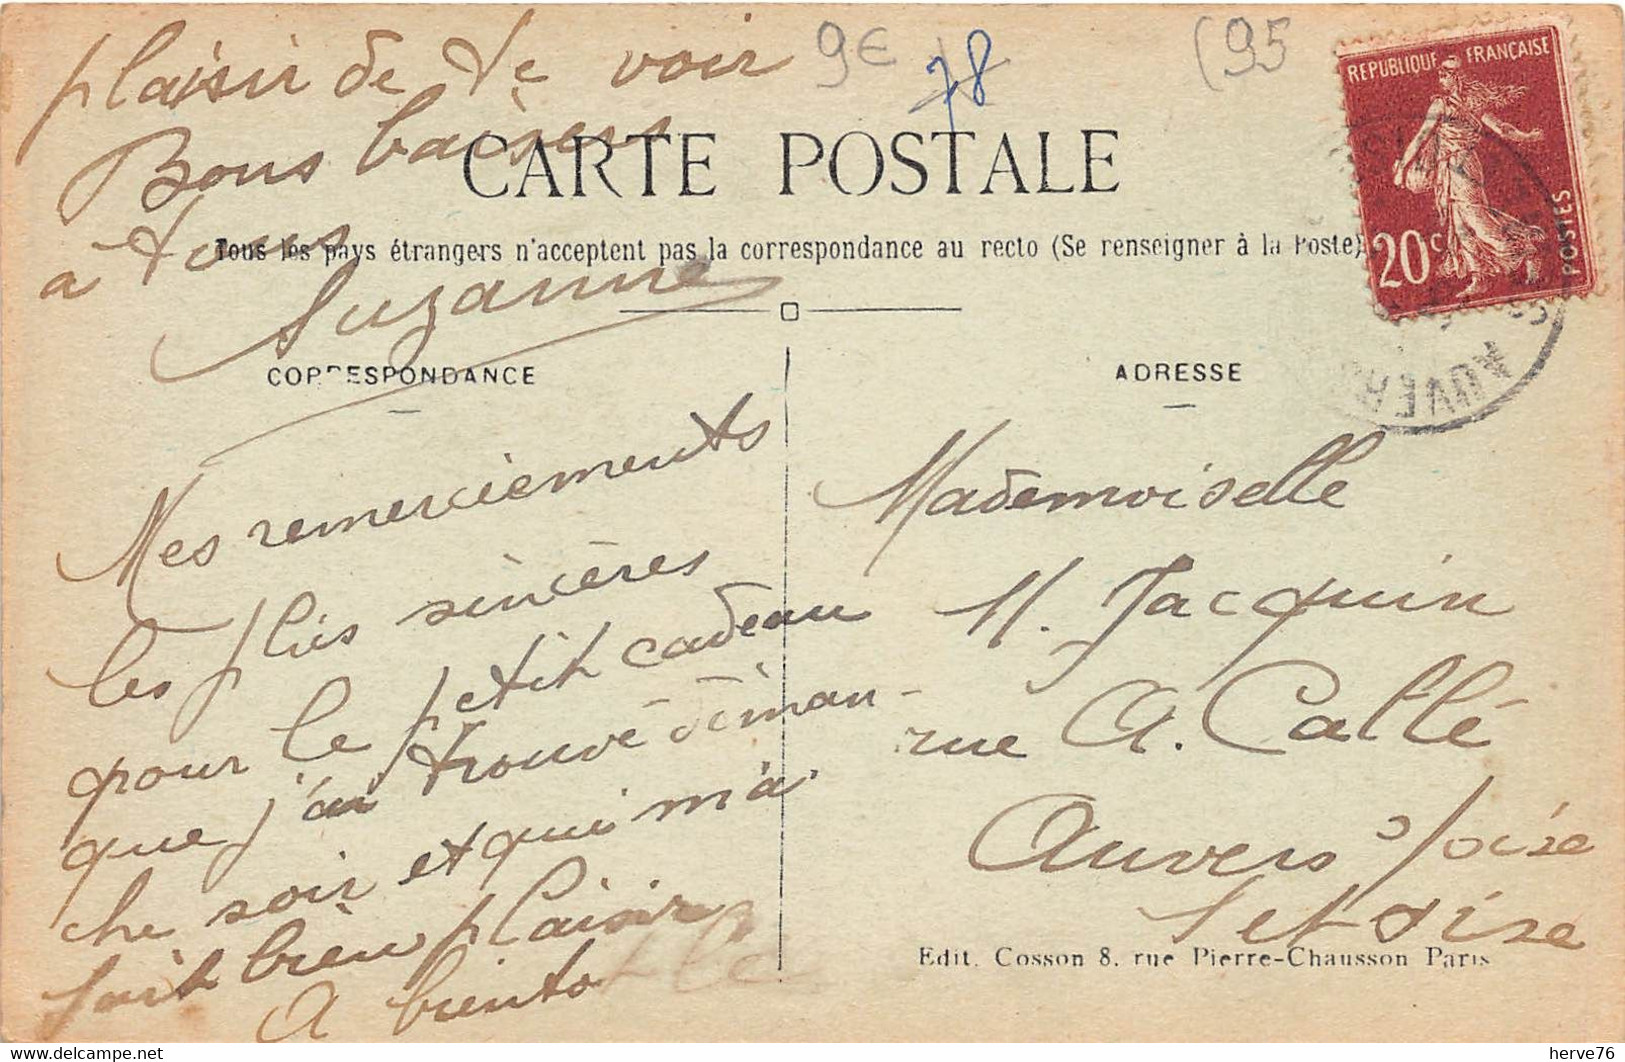 plaisir de te voir
Bons baisers
a tous
Suzanne
9€
78
(95
REPUBLIQUE FRANÇAISE
20c
POSTES
CARTE POSTALE
Tous les pays étrangers n'acceptent pas la correspondance au recto (Se renseigner à la Poste)
CORRESPONDANCE
Mes remerciements
les plus sincères
pour le petit cadeau
que j'ai trouvé diman-
che soir et qui m'a
fait bien plaisir
A bientot le
ADRESSE
Mademoiselle
M. Jacquin
rue A. Callé
Auvers s/oise
Set oise
Edit. Cosson 8, rue Pierre-Chausson Paris
delcampe.net
herve76